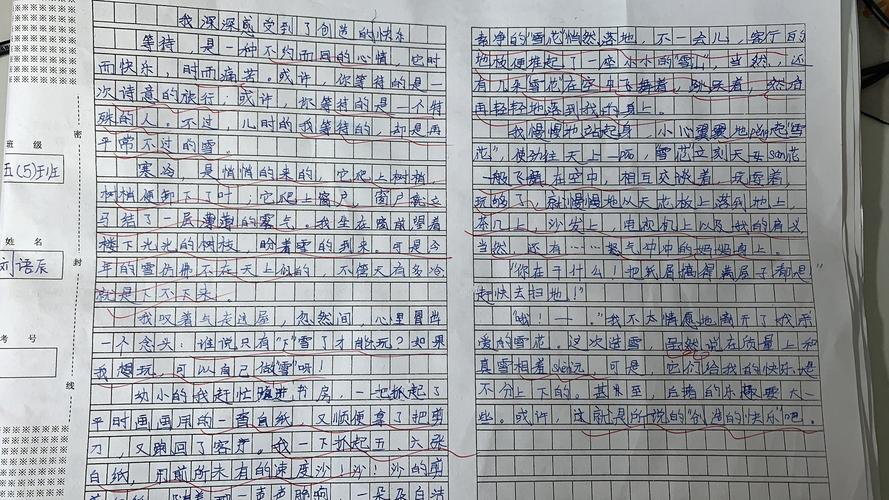 班级
五(5)班
姓名
刘语辰
考号
密
封
线
我深深感受到了创造的快乐
等待，是一种不约而同的心情，它时
而快乐，时而痛苦。或许，你等待的是一
次诗意的旅行；或许，你等待的是一个特
殊的人。不过，儿时的我等待的，却是再
平常不过的雪。
寒冷，是悄悄的来的，它爬上树梢，
树梢便卸下了叶；它爬上窗户，窗户便立
马结了一层薄薄的雾气。我坐在窗前望着
楼下光光的树枝，盼着雪的到来，可是今
年的雪仿佛不在天上似的，不管天有多冷
就是下不下来。
我叹着气走进屋，忽然间，心里冒出
一个念头：谁说只有"下"雪了才能玩？如果
我想玩，可以自己"做"雪呀！
幼小的我赶忙跑进书房，一把抓起了
平时画画用的一沓白纸，又顺便拿了把剪
刀，又跑回了客厅。我一下抓起五、六张
白纸，用前所未有的速度沙！沙！沙的剪
一声声脆响，一朵朵白洁
素净的"雪花"悄然落地，不一会儿，客厅的
地板便堆起了一座小小的"雪"山，当然，还
有几朵"雪花"在空中飞舞着，跳跃着，然后
再轻轻地落到我的身上。
我慢慢地站起身，小心翼翼地pěng起"雪
花"，使劲往天上一pāo，"雪花"立刻天女sàn花
一般飞舞在空中，相互交谈着，玩耍着，
玩够了，就慢慢地从天花板上落到地上，
茶几上，沙发上，电视机上以及我的肩上
当然，还有……怒气冲冲的妈妈身上。
"你在干什么！把纸屑搞得满屋子都是"
赶快去扫地！"
"哦！—。"我不太情愿地离开了我那
的雪花。这次造雪，虽然说在质量上和
真雪相差shèn远，可是，它们给我的快乐是
不分上下的。甚至，自造的乐趣要大一
些。或许，这就是所说的"创造的快乐"吧。